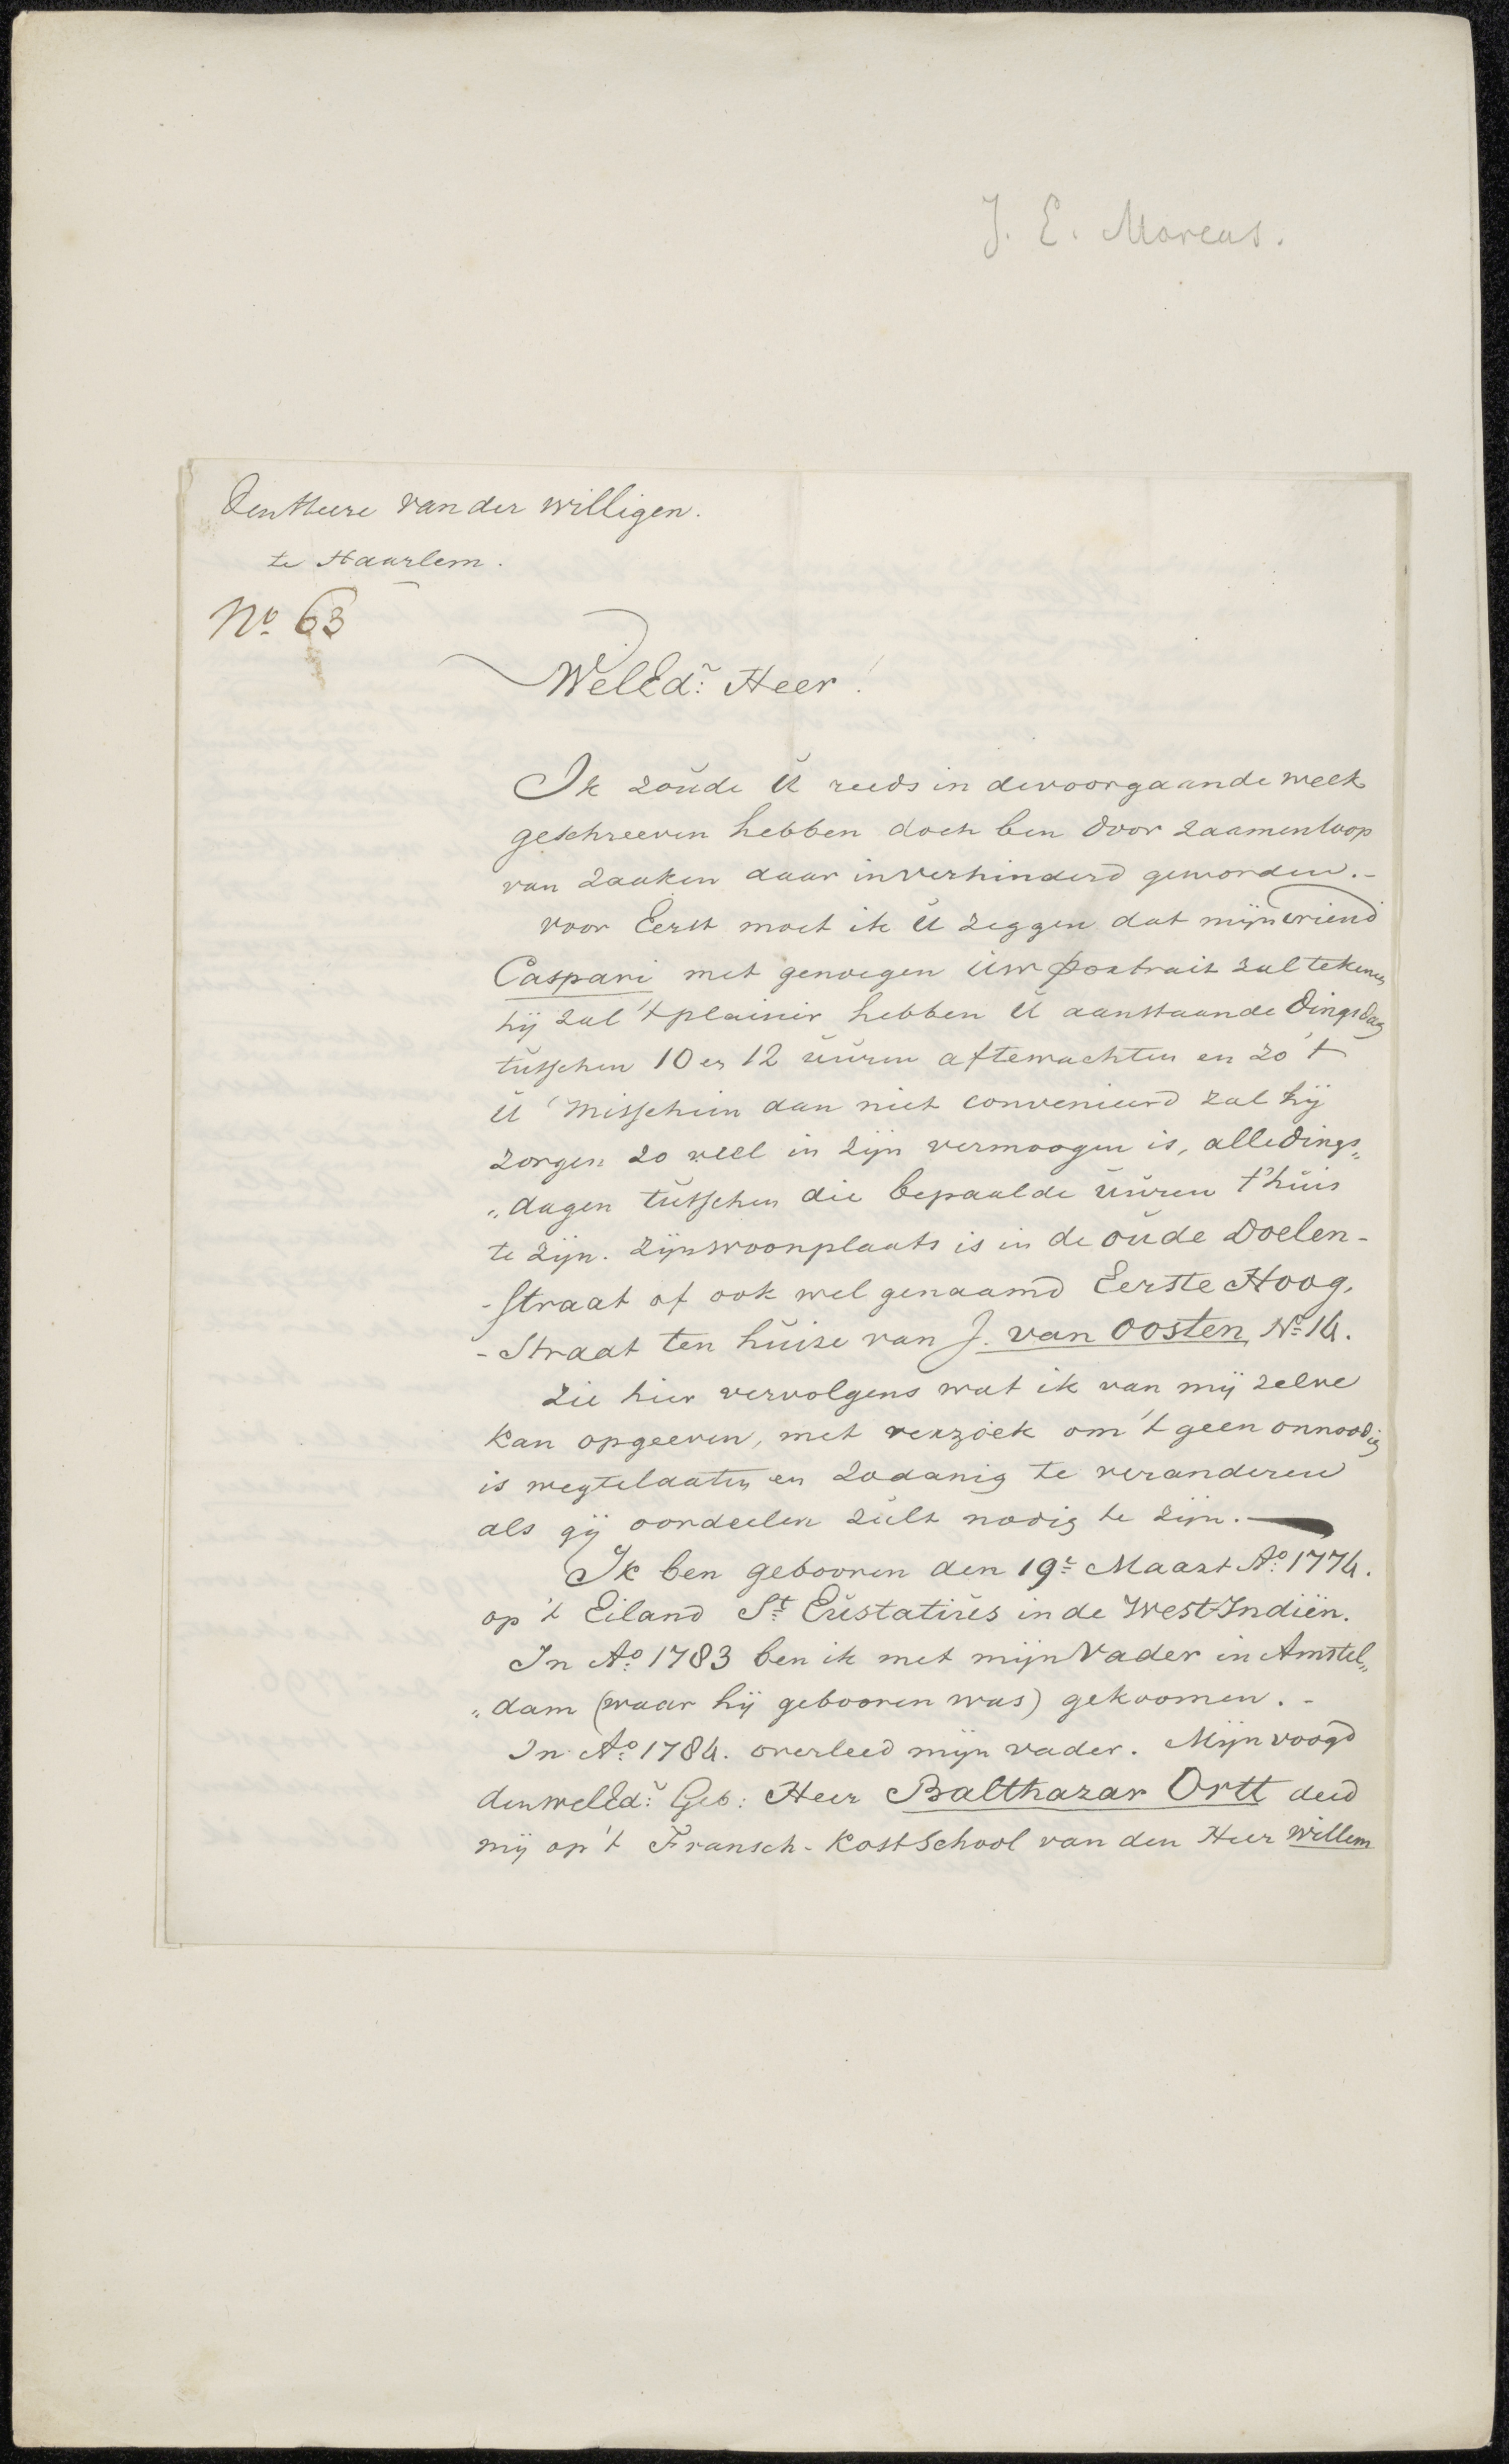 J. E. Marcus.
Den Heere van der Willigen.
te Haarlem.
No. 63
WelEdr: Heer!
Ik zoude U reeds in de voorgaande week
geschreeven hebben doch ben door zaamenloop
van zaaken daar in verhinderd geworden.-
voor Eerst moet ik U zeggen dat mijn vriend
Caspari met genoegen uw portrait zal tekenen
hij zal 't plaisir hebben U aanstaande Dingsdag
tusschen 10 en 12 uuren aftewachten en zo 't
U misschien dan niet convenieerd zal hij
zorgen zo veel in zijn vermoogen is, alle dings„
„dagen tusschen die bepaalde uuren t'huis
te zijn. zijn woonplaats is in de oude Doelen-
-straat of ook wel genaamd Eerste Hoog,
-Straat ten huize van J. van Oosten No 14.
Zie hier vervolgens wat ik van mij zelve
kan opgeeven, met verzoek om 't geen onnoodig
is wegtelaaten en zodanig te veranderen
als gij oordeelen zult nodig te zijn.-
Ik ben gebooren den 19e Maart Ao: 1774.
op 't Eiland St: Eustatius in de West-Indiën.
In Ao: 1783 ben ik met mijn Vader in Amstel„
„dam (waar hij gebooren was) gekoomen. -
In Ao: 1784. overleed mijn vader. Mijn voogd
den welEdr: Geb: Heer Balthazar Ortt deed
mij op 't Fransch-kostschool van den Heer Willem